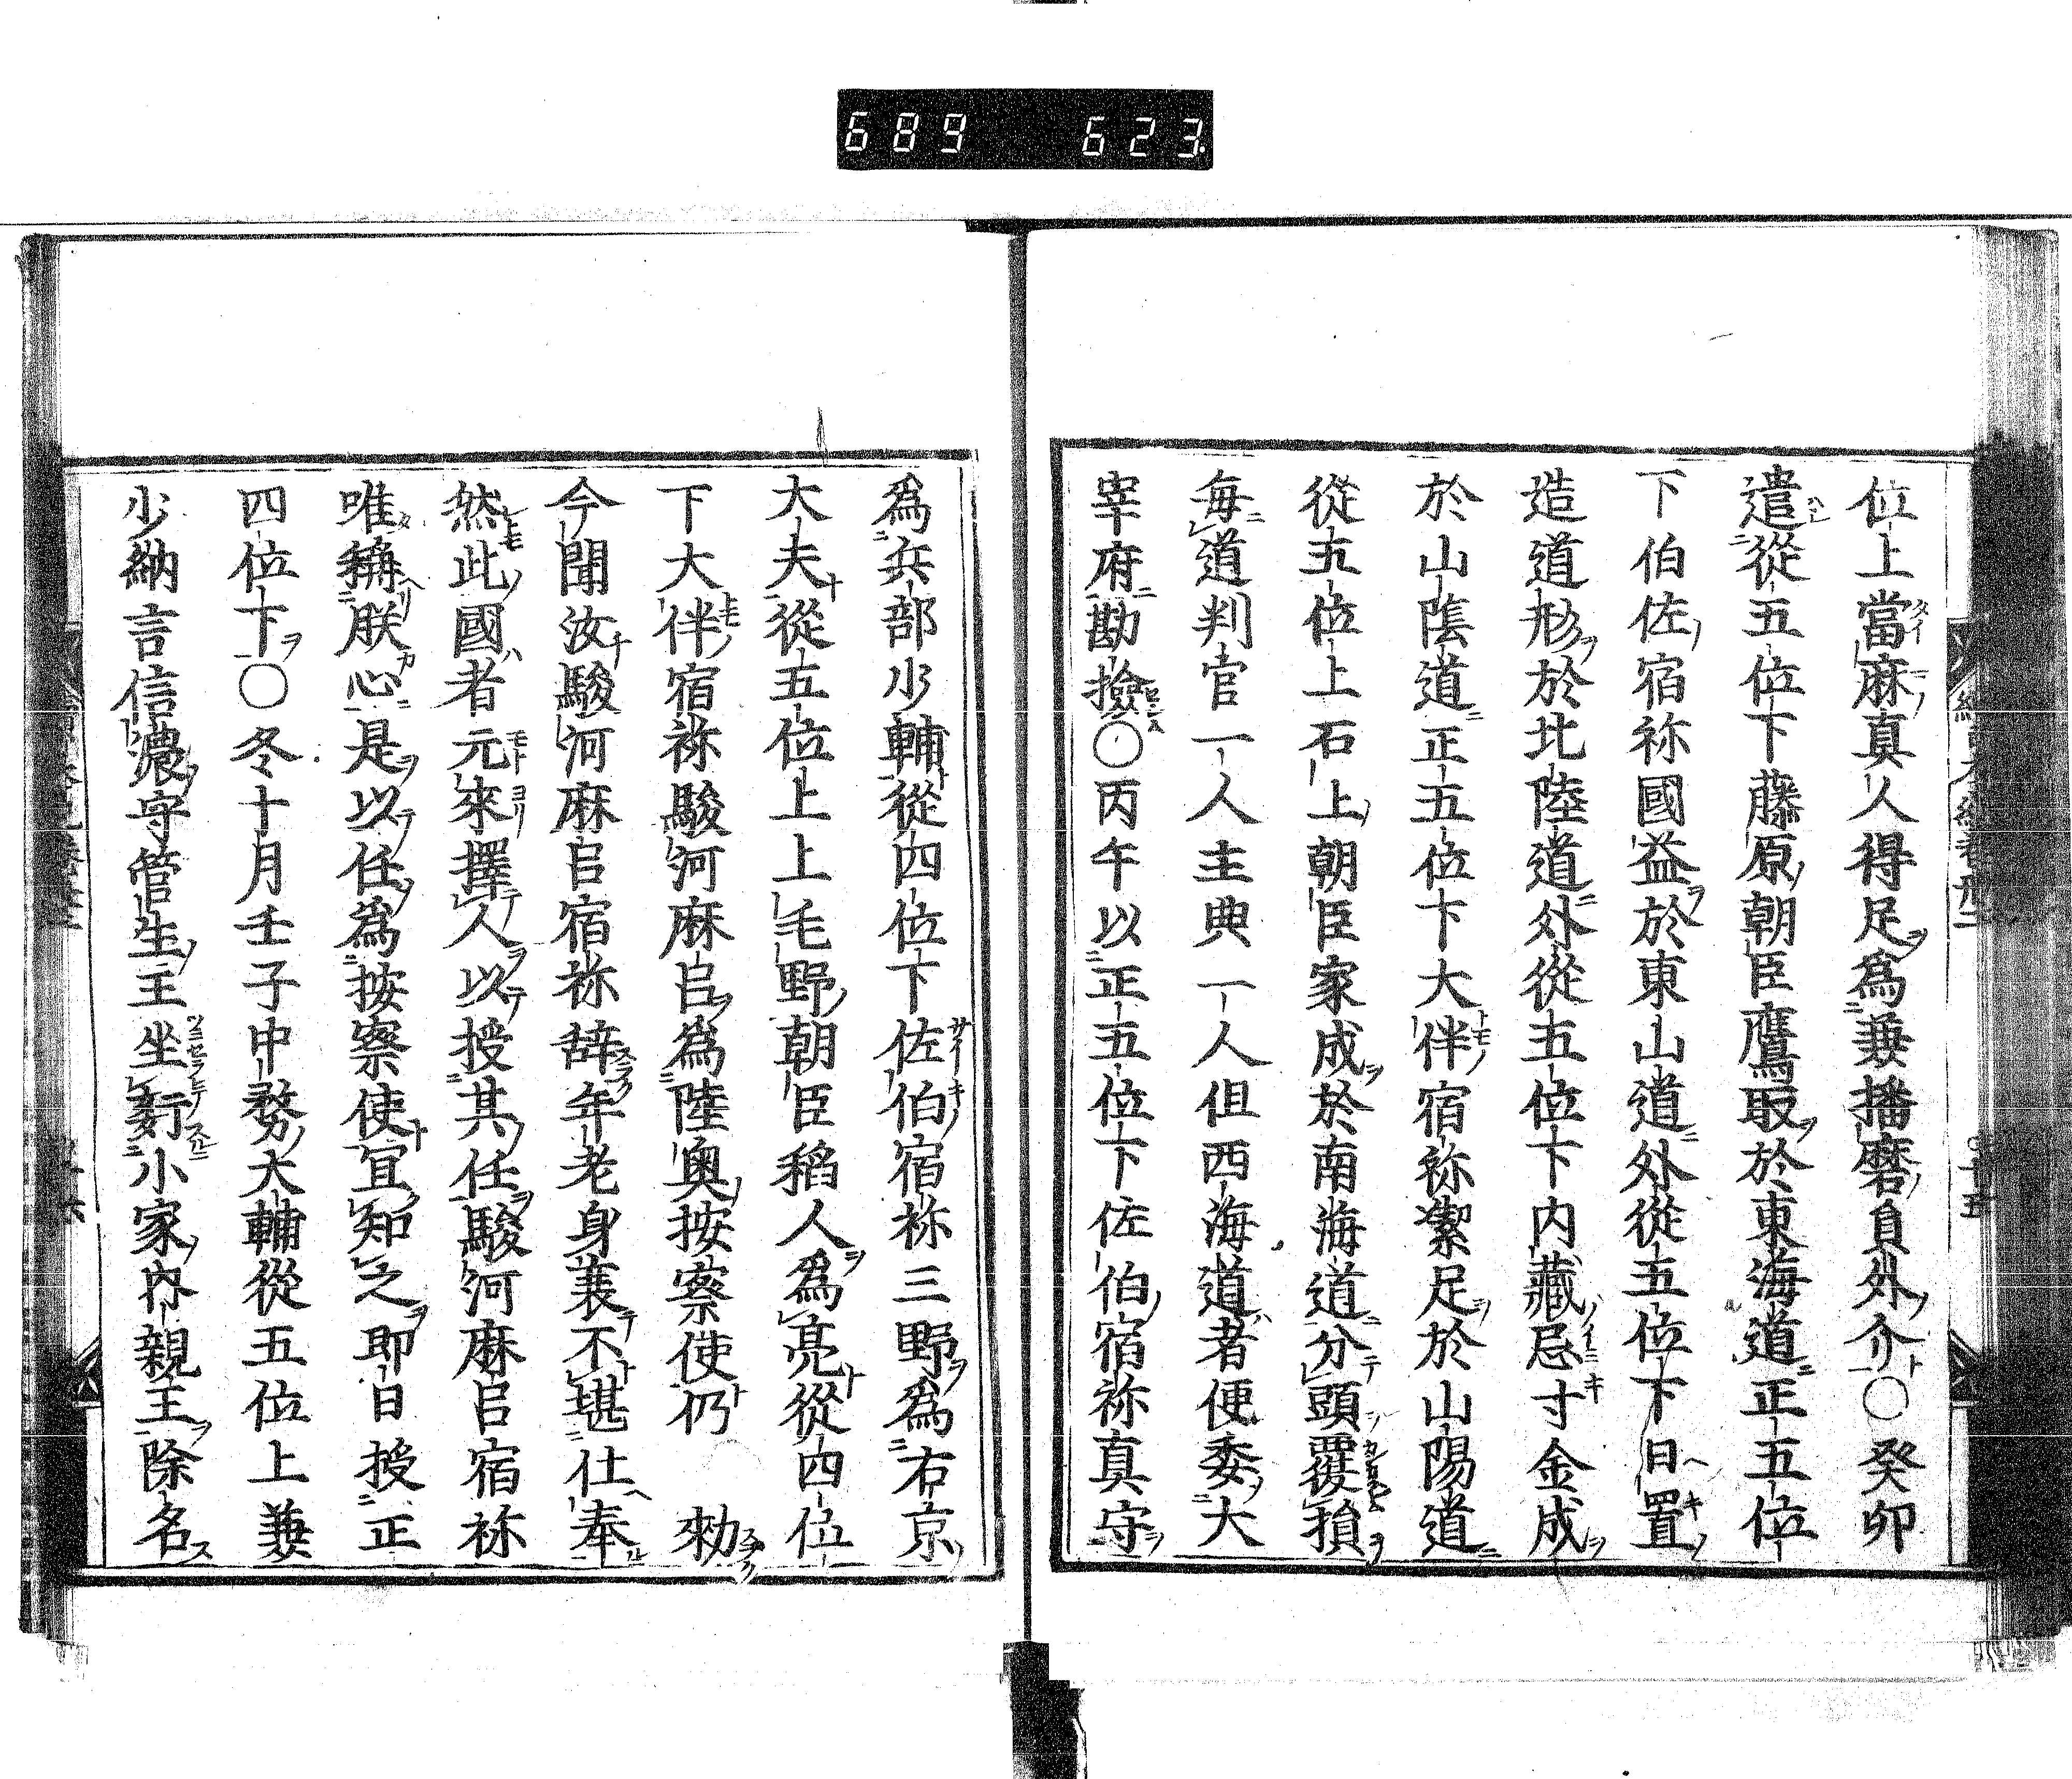 689 623
位上當麻真人得足爲兼播磨員外介〇癸卯
遣從五位下藤原朝臣鷹取於東海道正五位
下伯佐宿祢國益於東山道外從五位下日置
造道形於北陸道外從五位下内藏忌寸金成
於山陰道正五位下大伴宿祢潔足於山陽道
從五位上石上朝臣家成於南海道分頭覆損
每道判官一人主典一人但西海道者便委大
宰府勘撿〇丙午以正五位下佐伯宿祢真守
爲兵部少輔從四位下佐伯宿祢三野爲右京
大夫從五位上上毛野朝臣稻人爲亮從四位
下大伴宿祢駿河麻呂爲陸奥按察使仍 勑
今聞汝駿河麻呂宿祢辞年老身衰不堪仕奉
然此國者元來擇人以授其任駿河麻呂宿祢
唯稱朕心是以任爲按察使宜知之即日授正
四位下〇冬十月壬子中務大輔從五位上兼
少納言信濃守管生王坐姧小家内親王除名